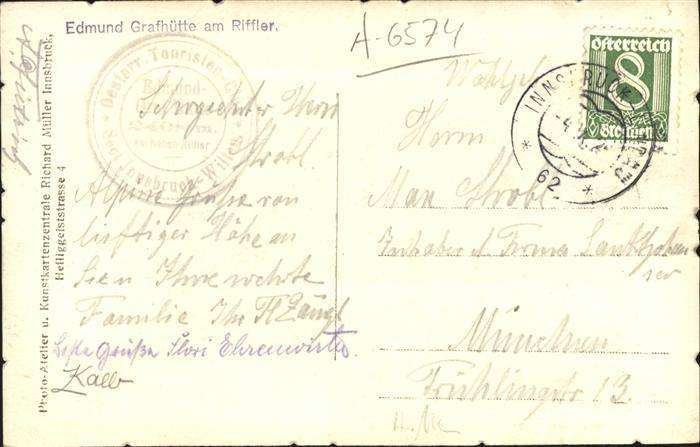 Edmund Grafhütte am Riffler.
A-6574
Photo-Atelier u. Kunstkartenzentrale Richard Müller Innsbruck,
Heiliggeiststrasse 4
Oesterr. Touristen
Edmund-
Innsbruck-Wilten
Österreich
8
Groschen
INNSBRUCK
* 62 *
Sehrgeehrter Herr
Strobl.
Alpine Grüße von
luftiger Höhe an
Sie u Ihre werte
Familie Ihr H Zängl
Beste Grüße Flori Ehrenwirth
Kalb
Wohlgeb
Herrn
Max Strobl
Inhaber d Firma
München
Frühlingstr 13